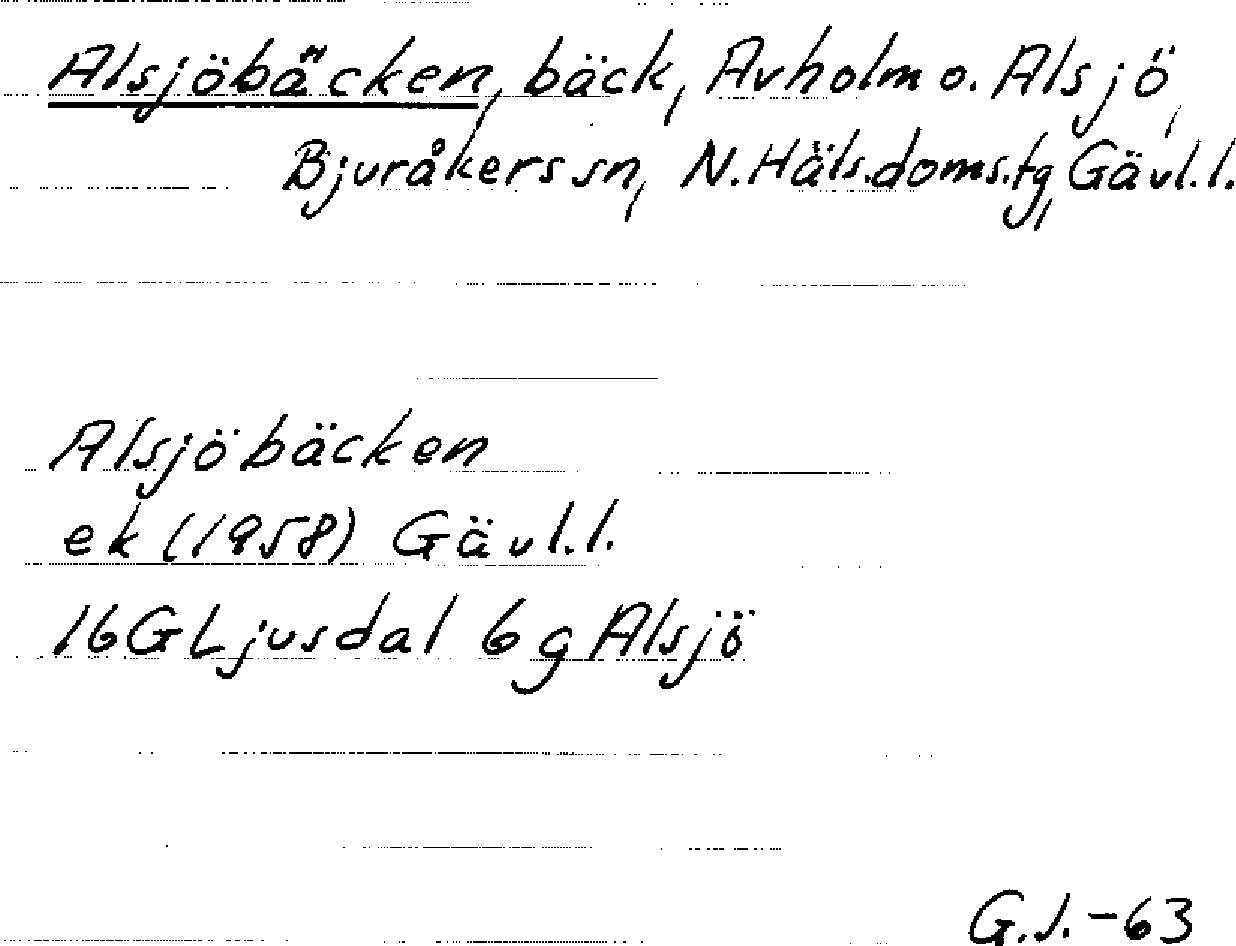 Alsjöbäcken, bäck, Avholm o. Alsjö,
Bjuråkers sn, N. Häls. doms. tg, Gävl. l.
Alsjöbäcken
ek (1958) Gävl. l.
16G Ljusdal 6g Alsjö
G.J. -63